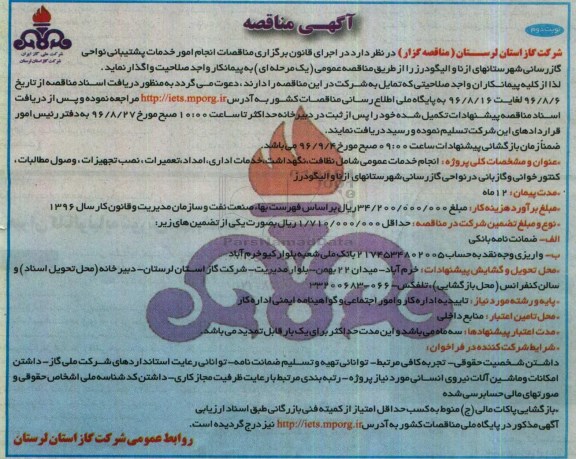 آگهی مناقصه
نوبت دوم
شرکت ملی گاز ایران
شرکت گاز استان لرستان
شرکت گاز استان لرستان (مناقصه گزار) در نظر دارد در اجرای قانون برگزاری مناقصات انجام امور خدمات پشتیبانی نواحی
گازرسانی شهرستانهای ازنا و الیگودرز را از طریق مناقصه عمومی (یک مرحله ای) به پیمانکار واجد صلاحیت واگذار نماید.
لذا از کلیه پیمانکاران واجد صلاحیتی که تمایل به شرکت در این مناقصه را دارند، دعوت می گردد به منظور دریافت اسناد مناقصه از تاریخ
۹۶/۸/۶ لغایت ۹۶/۸/۱۶ به پایگاه ملی اطلاع رسانی مناقصات کشور به آدرس http://iets.mporg.ir مراجعه نموده و پس از دریافت
اسناد مناقصه پیشنهادات تکمیل شده خود را پس از ثبت در دبیرخانه حداکثر تا ساعت ۱۰:۰۰ صبح مورخ ۹۶/۸/۲۷ به دفتر رئیس امور
قراردادهای این شرکت تسلیم نموده و رسید دریافت نمایند.
ضمناً زمان بازگشائی پیشنهادات ساعت ۰۹:۰۰ صبح مورخ ۹۶/۹/۴ می باشد.
-عنوان و مشخصات کلی پروژه: انجام خدمات عمومی شامل نظافت، نگهداشت، خدمات اداری، امداد، تعمیرات، نصب تجهیزات، وصول مطالبات،
کنتور خوانی و گازبانی در نواحی گازرسانی شهرستانهای ازنا و الیگودرز
-مدت پیمان: ۱۲ ماه
-مبلغ برآورد هزینه کار: مبلغ ۳۴/۲۰۰/۰۰۰/۰۰۰ ریال بر اساس فهرست بها، صنعت نفت و سازمان مدیریت و قانون کار سال ۱۳۹۶
-نوع و مبلغ تضمین شرکت در مناقصه: حداقل ۱/۷۱۰/۰۰۰/۰۰۰ ریال بصورت یکی از تضمین های زیر:
الف- ضمانت نامه بانکی
ب- واریزی وجه نقد به حساب ۲۱۷۴۵۳۴۸۰۲۰۰۵ بانک ملی شعبه بلوار کیو خرم آباد
-محل تحویل و گشایش پیشنهادات: خرم آباد- میدان ۲۲ بهمن- بلوار مدیریت- شرکت گاز استان لرستان- دبیرخانه (محل تحویل اسناد) و
سالن کنفرانس (محل بازگشایی)، تلفکس ۰۶۶-۳۳۲۰۰۶۸۳
-پایه و رشته مورد نیاز: تاییدیه اداره کار و امور اجتماعی و گواهینامه ایمنی اداره کار
-محل تامین اعتبار: منابع داخلی
-مدت اعتبار پیشنهادها: سه ماه می باشد و این مدت حداکثر برای یک بار قابل تمدید می باشد.
-شرایط شرکت کننده در فراخوان:
داشتن شخصیت حقوقی- تجربه کافی مرتبط- توانائی تهیه و تسلیم ضمانت نامه- توانائی رعایت استانداردهای شرکت ملی گاز- داشتن
امکانات و ماشین آلات نیروی انسانی مورد نیاز پروژه- رتبه بندی مرتبط با رعایت ظرفیت مجاز کاری- داشتن کد شناسه ملی اشخاص حقوقی و
صورتهای مالی حسابرسی شده
-بازگشایی پاکات مالی (ج) منوط به کسب حداقل امتیاز از کمیته فنی بازرگانی طبق اسناد ارزیابی
آگهی مذکور در پایگاه ملی مناقصات کشور به آدرس http://iets.mporg.ir نیز درج گردیده است.
روابط عمومی شرکت گاز استان لرستان